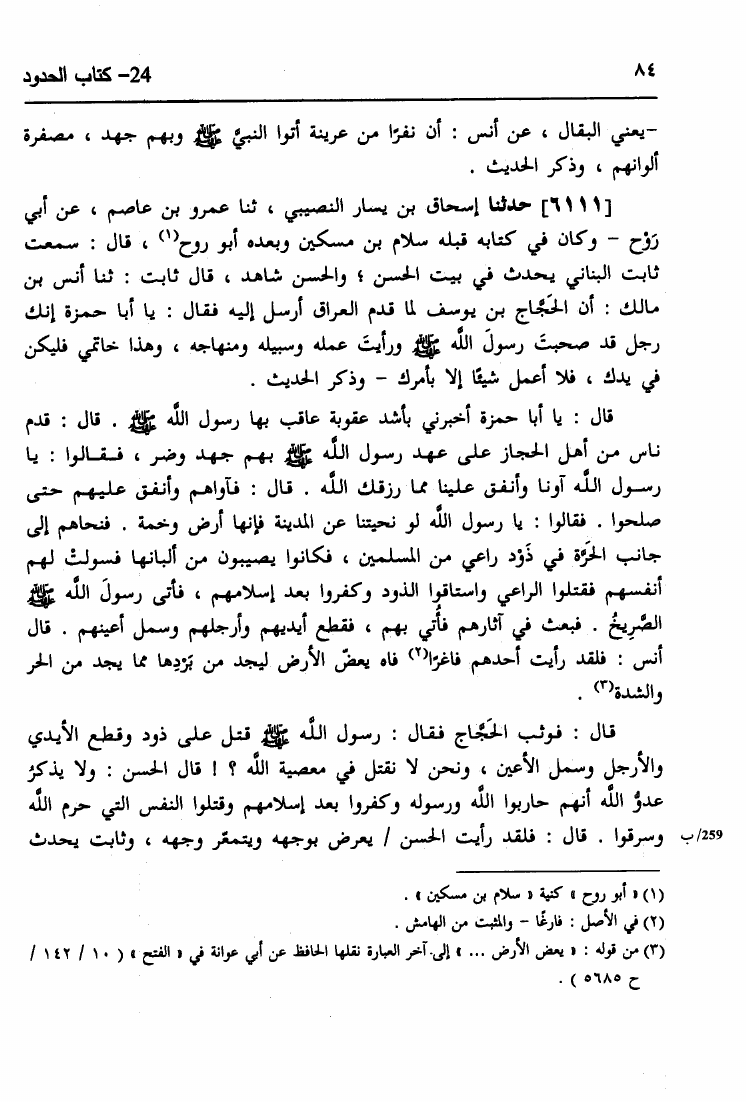 ٨٤
24- كتاب الحدود
-يعني البقال ، عن أنس : أن نفرًا من عرينة أتوا النبيَّ ﷺ وبهم جهد ، مصفرة
ألوانهم ، وذكر الحديث .
[٦١١١] حدثنا إسحاق بن يسار النصيبي ، ثنا عمرو بن عاصم ، عن أبي
رَوْح - وكان في كتابه قبله سلام بن مسكين وبعده أبو روح(١) ، قال : سمعت
ثابت البناني يحدث في بيت الحسن ؛ والحسن شاهد ، قال ثابت : ثنا أنس بن
مالك : أن الحَجَّاج بن يوسف لما قدم العراق أرسل إليه فقال : يا أبا حمزة إنك
رجل قد صحبتَ رسولَ اللَّه ﷺ ورأيتَ عمله وسبيله ومنهاجه ، وهذا خاتمي فليكن
في يدك ، فلا أعمل شيئًا إلا بأمرك - وذكر الحديث .
قال : يا أبا حمزة أخبرني بأشد عقوبة عاقب بها رسول اللَّه ﷺ . قال : قدم
ناس من أهل الحجاز على عهد رسول اللَّه ﷺ بهم جهد وضر ، فـقـالـوا : يا
رسـول اللَّـه آونـا وأنـفـق عـلـيـنـا مما رزقك اللَّه . قال : فآواهم وأنفق عليـهم حتى
صلحوا . فقالوا : يا رسول اللَّه لو نحيتنا عن المدينة فإنها أرض وخمة . فنحاهم إلى
جانب الحَرَّة في ذَوْد راعي من المسلمين ، فكانوا يصيبون من ألبانها فسولتْ لهم
أنفسهم فقتلوا الراعي واستاقوا الذود وكفروا بعد إسلامهم ، فأتى رسولَ اللَّه ﷺ
الصَّرِيخُ . فبعث في آثارهم فأُتي بهم ، فقطع أيديهم وأرجلهم وسمل أعينهم . قال
أنس : فلقد رأيت أحدهم فاغرًا(٢) فاه يعضّ الأرض ليجد من بَرْدِها مما يجد من الحر
والشدة(٣) .
قال : فوثب الحَجَّاج فقال : رسول اللَّه ﷺ قتل على ذود وقطع الأيدي
والأرجل وسمل الأعين ، ونحن لا نقتل في معصية اللَّه ؟ ! قال الحسن : ولا يذكرُ
عدوُّ اللَّه أنهم حاربوا اللَّه ورسوله وكفروا بعد إسلامهم وقتلوا النفس التي حرم اللَّه
وسرقوا . قال : فلقد رأيت الحسن / يعرض بوجهه ويتمعّر وجهه ، وثابت يحدث
259/ب
(١) « أبو روح » كنية « سلام بن مسكين » .
(٢) في الأصل : فارغًا - والمثبت من الهامش .
(٣) من قوله : « يعض الأرض ... » إلى آخر العبارة نقلها الحافظ عن أبي عوانة في « الفتح » ( ١٠ / ١٤٢ /
ح ٥٦٨٥ ) .